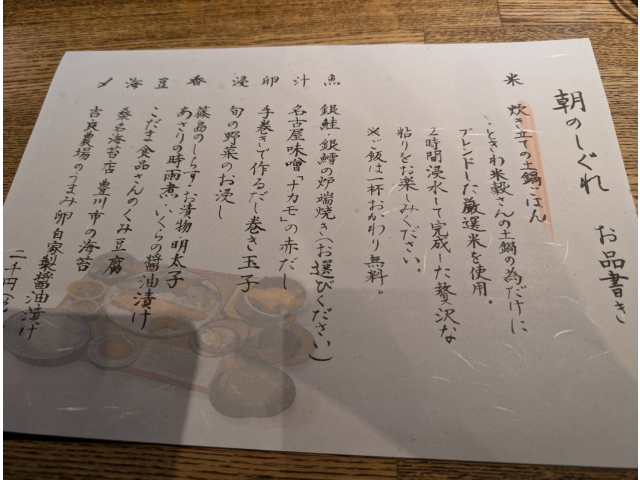 朝のしぐれ お品書き
米 炊き立ての土鍋ごはん
ときわ米穀さんの土鍋の為だけに
ブレンドした厳選米を使用。
2時間浸水して完成した贅沢な
粘りをお楽しみください。
※ご飯は一杯おかわり無料。
魚 銀鮭・銀鱈の炉端焼き(お選びください)
汁 名古屋味噌「ナカモ」の赤だし
卵 手巻きで作るだし巻き玉子
浸 旬の野菜のお浸し
香 篠島のしらす・お漬物 明太子
あさりの時雨煮・いくらの醤油漬け
豆 こだま食品さんのくみ豆腐
海 桑名海苔店 豊川市の海苔
〆 吉良農場のうまみ卵 自家製醤油漬け
二千円